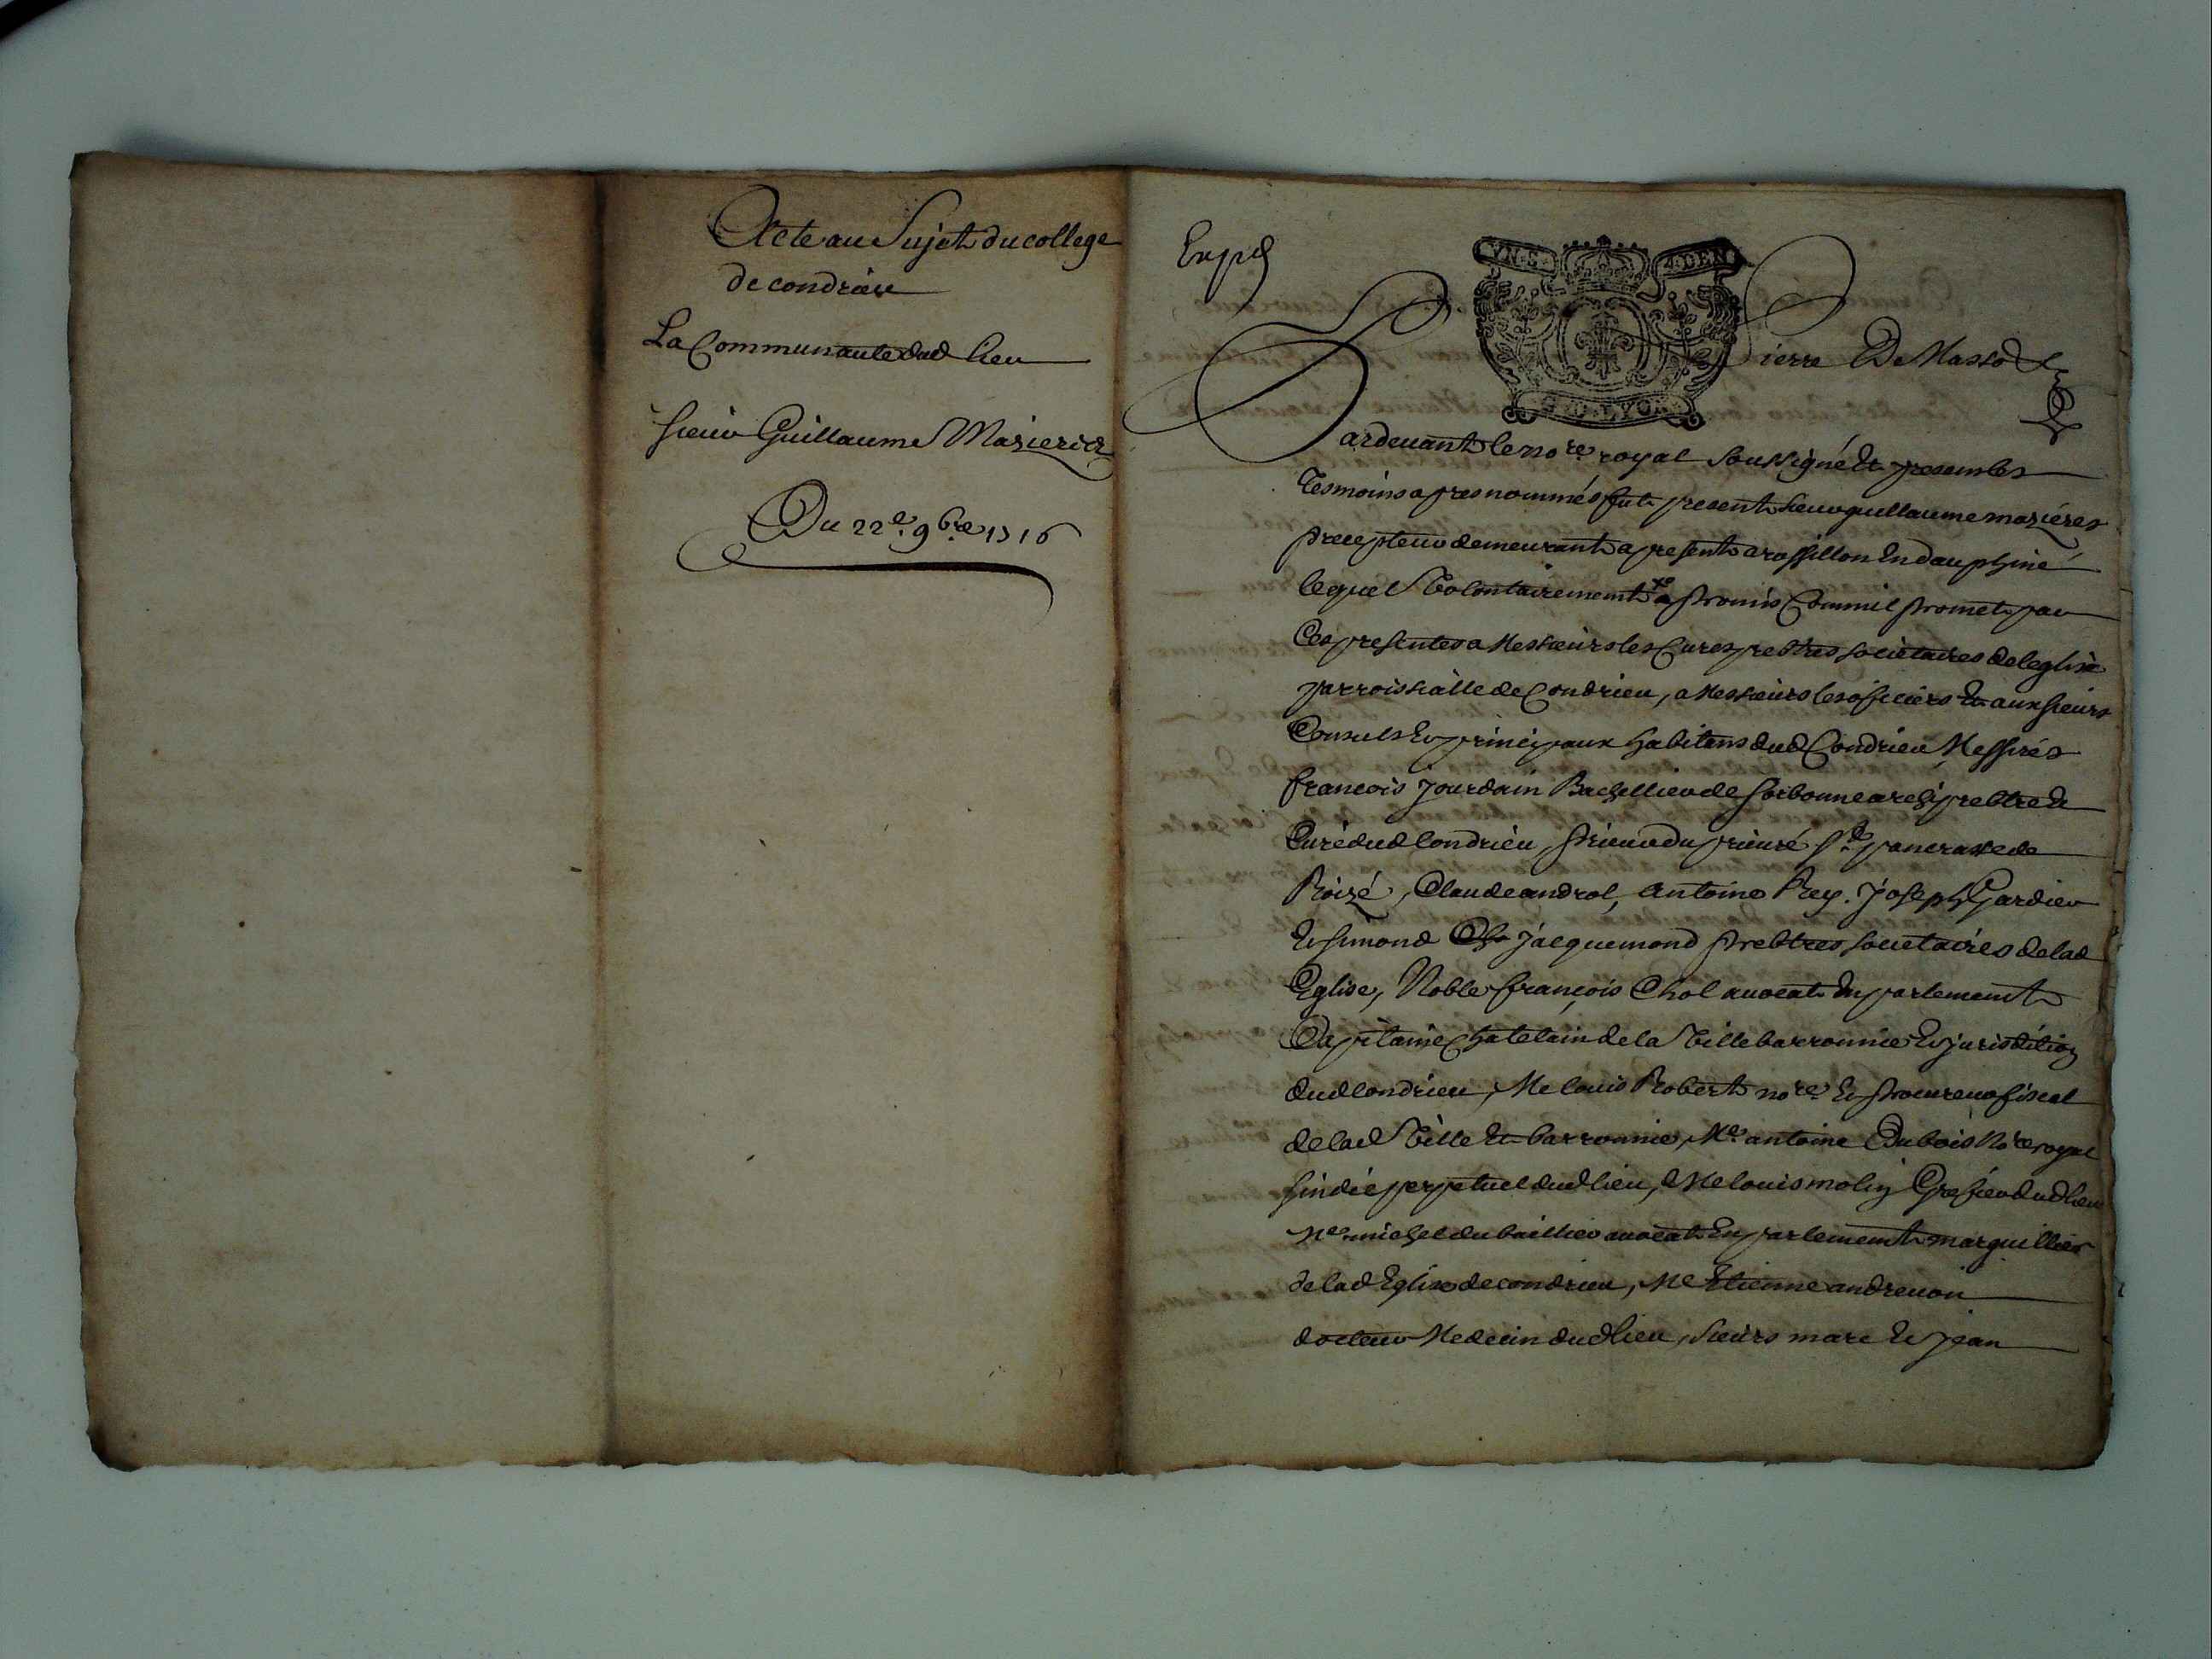 Acte au Sujet du college
de condrieu
La Communauté dud lieu
Sieur Guillaume Mazieres
Du 22e. 9bre 1716
Expd
VN. S. 4. DEN
G. D. LYON
Pierre De Masso
Pardevant le nore royal soussigné et presents
tesmoins apres nommés fut present sieur guillaume mazières
precepteur demeurant a present a rossillon En dauphiné
lequel volontairement a promis Comme il promet par
Ces presentes a Messieurs les Curez prebtres societaires de leglise
parroissialle de Condrieu, a Messieurs les officiers et aux sieurs
Consuls Et principaux habitans dud Condrieu, Messires
francois Jourdain Bachellier de sorbonne archiprebtre et
Curé dud Condrieu, prieur du prieuré st. pancrasse de
Roizé, Claude androl, antoine Rey. Joseph Gardier
Et simond jacquemond prebtres societaires de lad
Eglise, Noble françois Chol avocat En parlement
Capitaine Chatelain de la ville barronnie Et jurisdiction
dud Condrieu, Me louis Robert nore Et procureur fiscal
de lad ville Et barronnie, Me. antoine Dubois Nore royal
sindic perpetuel dud lieu, Me louis molin Grefier dud lieu
Me michel du baillier avocat En parlement marguillier
de lad Eglise de condrieu, Me Etienne andrevon
docteur Medecin dud lieu, sieurs marc Et jean